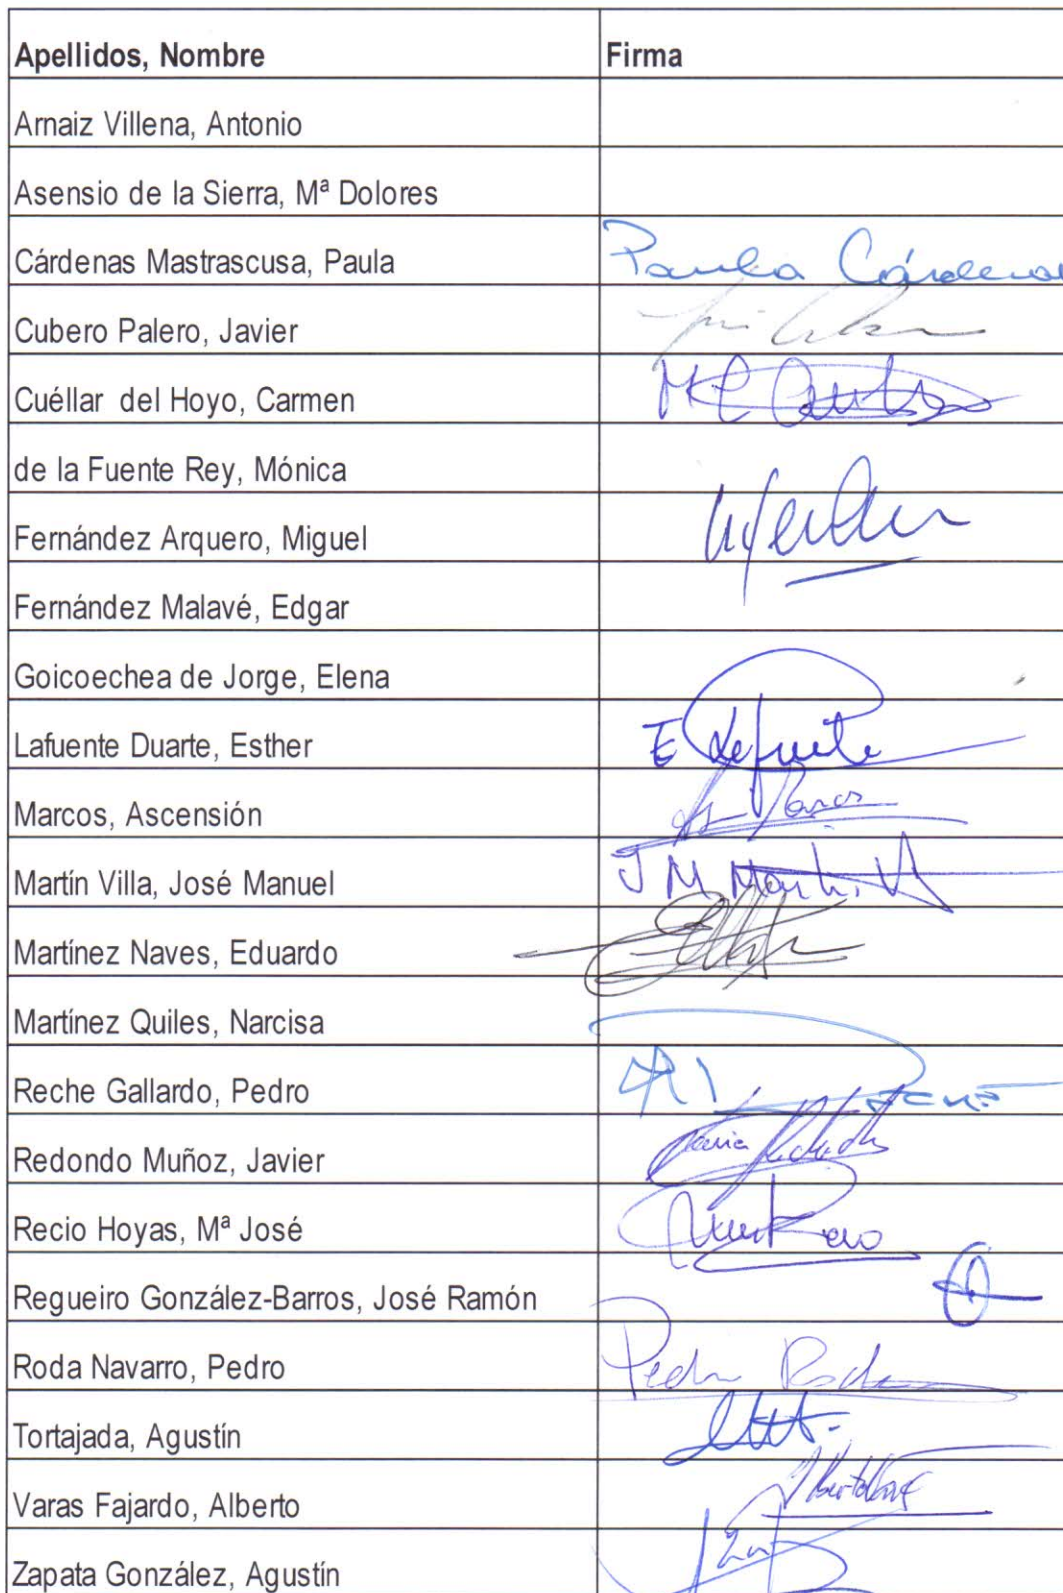 Apellidos, Nombre Firma
Arnaiz Villena, Antonio
Asensio de la Sierra, Mª Dolores
Cárdenas Mastrascusa, Paula Paula Cárdenas
Cubero Palero, Javier
Cuéllar del Hoyo, Carmen
de la Fuente Rey, Mónica
Fernández Arquero, Miguel
Fernández Malavé, Edgar
Goicoechea de Jorge, Elena
Lafuente Duarte, Esther E Lafuente
Marcos, Ascensión
Martín Villa, José Manuel J M Martin V
Martínez Naves, Eduardo
Martínez Quiles, Narcisa
Reche Gallardo, Pedro
Redondo Muñoz, Javier
Recio Hoyas, Mª José
Regueiro González-Barros, José Ramón
Roda Navarro, Pedro Pedro Roda
Tortajada, Agustín
Varas Fajardo, Alberto
Zapata González, Agustín